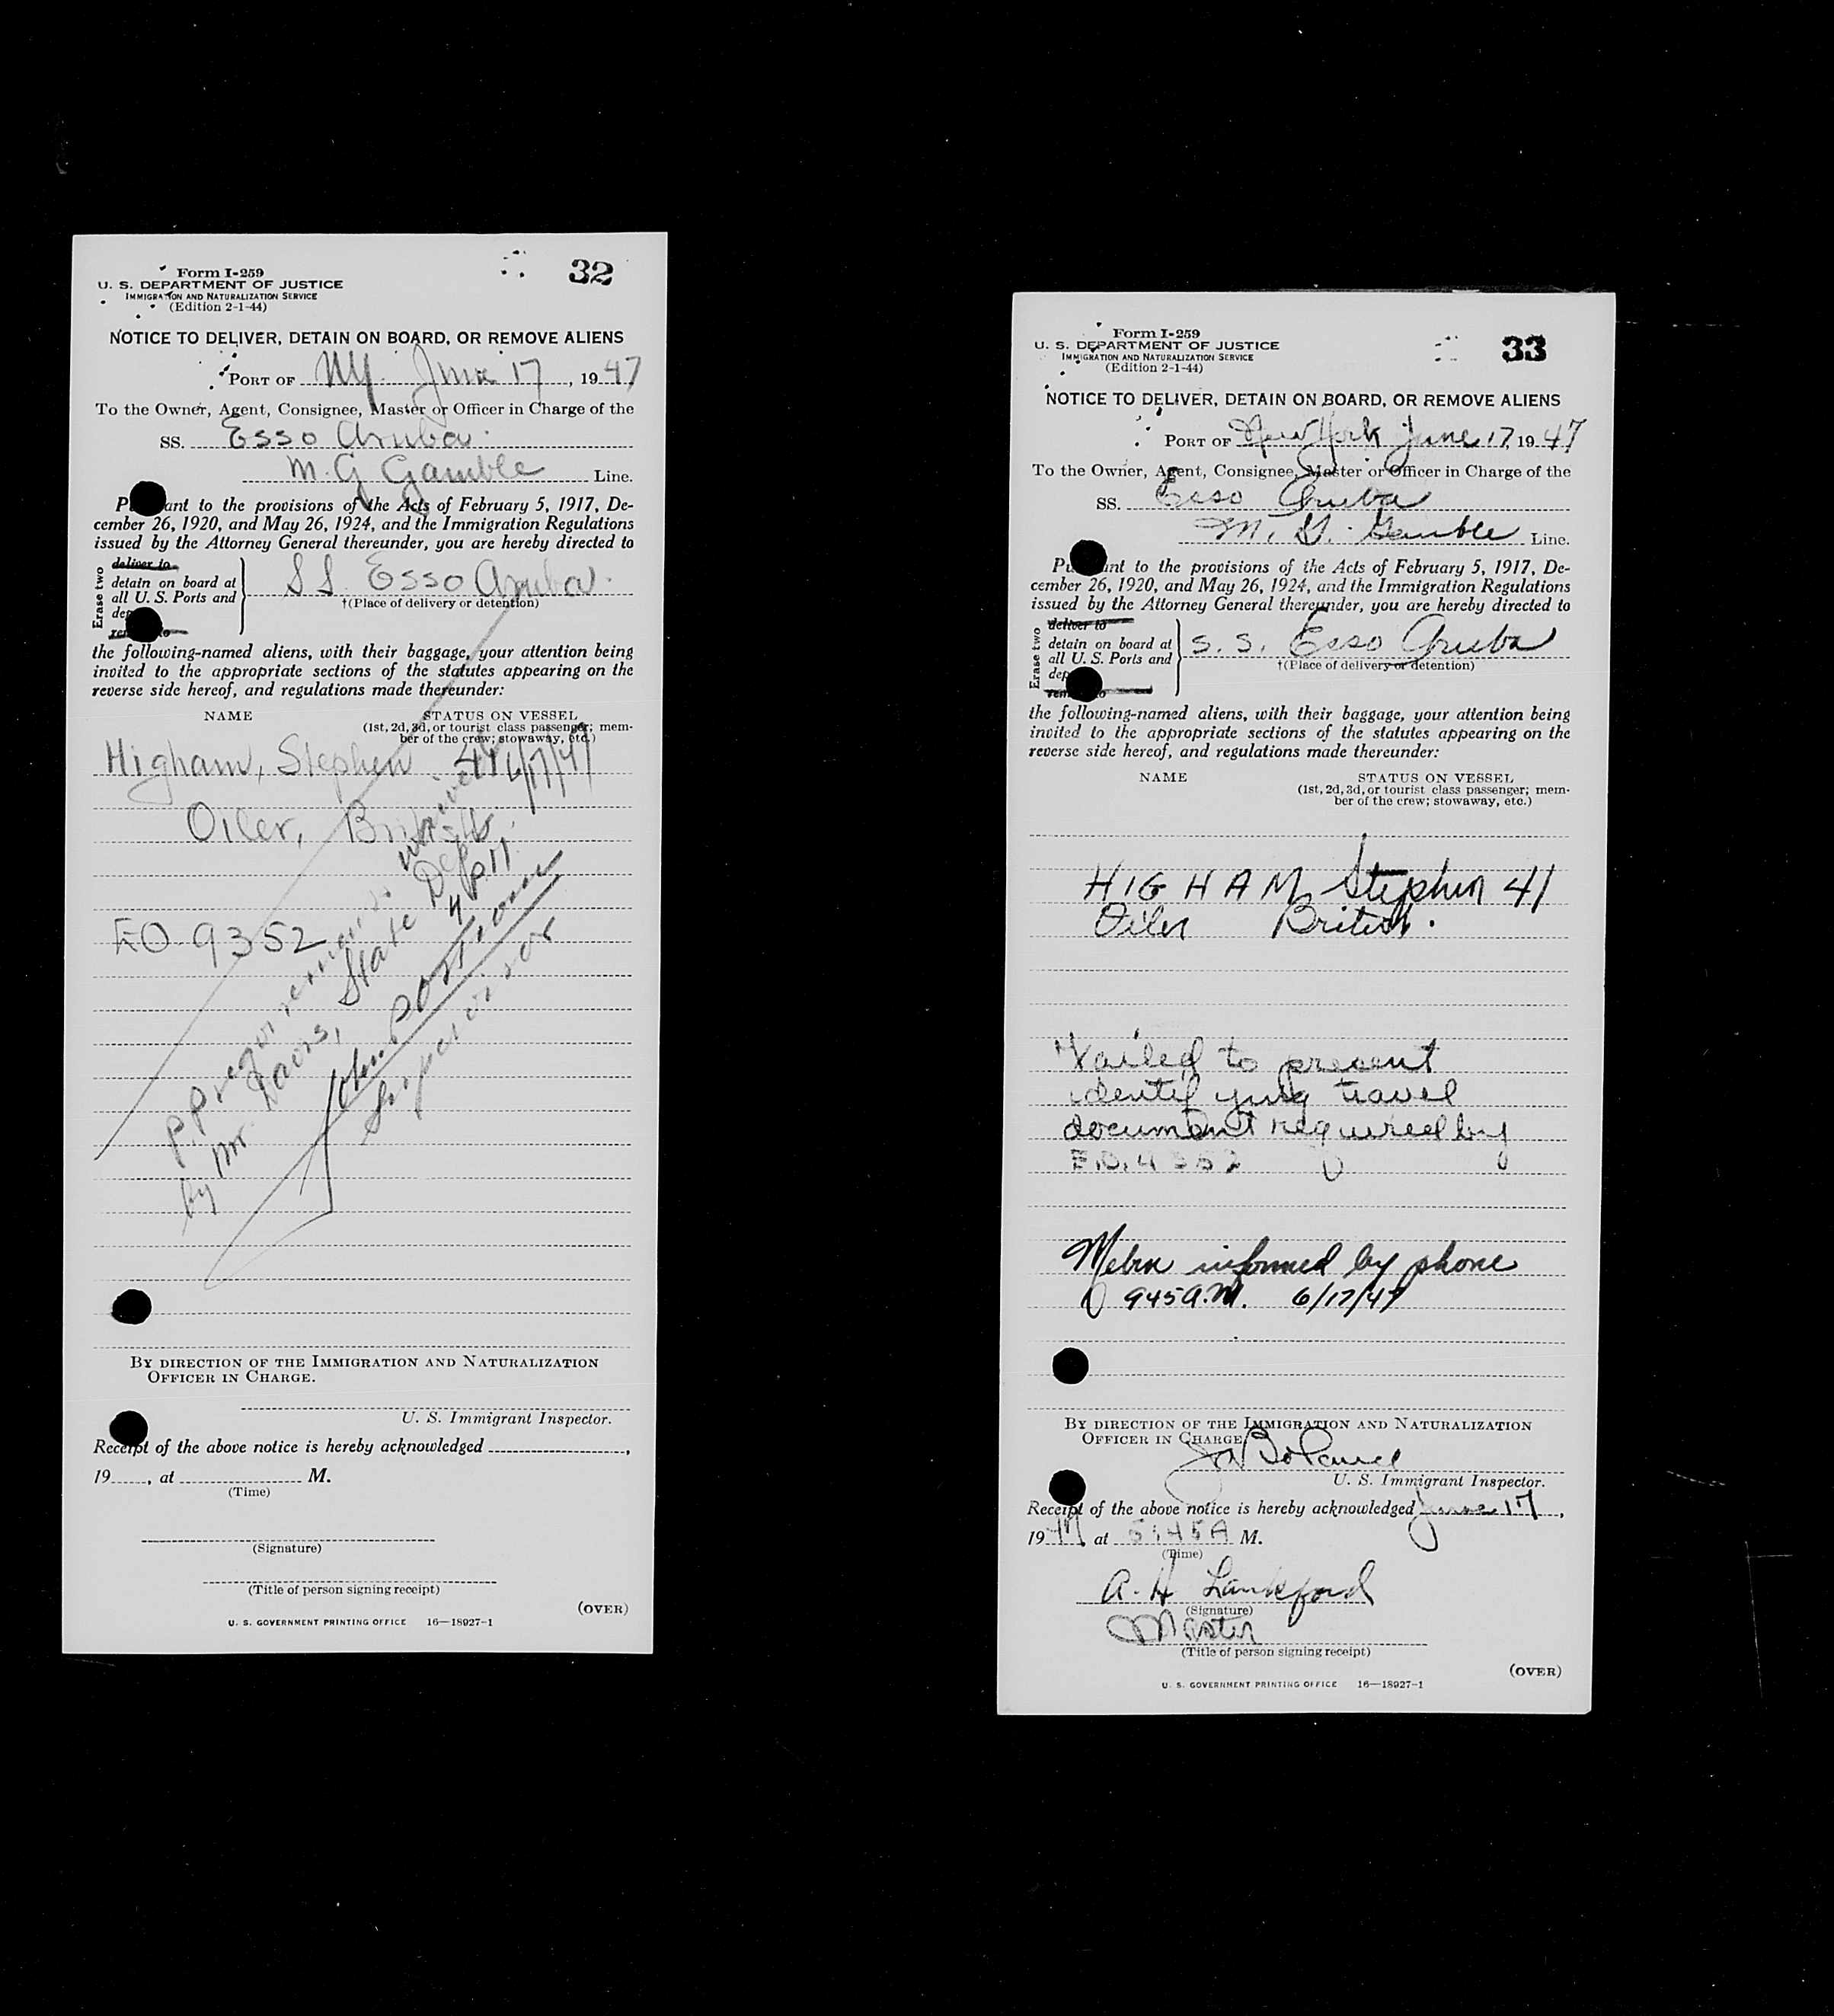 32
Form I-259
U. S. DEPARTMENT OF JUSTICE
IMMIGRATION AND NATURALIZATION SERVICE
(Edition 2-1-44)
NOTICE TO DELIVER, DETAIN ON BOARD, OR REMOVE ALIENS
PORT OF NY. June 17, 1947
To the Owner, Agent, Consignee, Master or Officer in Charge of the
SS. Esso Aruba.
M. G Gamble Line.
P ant to the provisions of the Acts of February 5, 1917, De-
cember 26, 1920, and May 26, 1924, and the Immigration Regulations
issued by the Attorney General thereunder, you are hereby directed to
Erase two
deliver to
detain on board at
all U. S. Ports and
SS. Esso Aruba.
†(Place of delivery or detention)
the following-named aliens, with their baggage, your attention being
invited to the appropriate sections of the statutes appearing on the
reverse side hereof, and regulations made thereunder:
NAME
STATUS ON VESSEL
(1st, 2d, 3d, or tourist class passenger; mem-
ber of the crew; stowaway, etc.)
Higham, Stephen 41 6/17/47
Oiler, British
EO 9352
P.P. requirements waived
by Mr. Davis, State Dept.
John
BY DIRECTION OF THE IMMIGRATION AND NATURALIZATION
OFFICER IN CHARGE.
U. S. Immigrant Inspector.
Receipt of the above notice is hereby acknowledged ,
19 , at M.
(Time)
(Signature)
(Title of person signing receipt)
(OVER)
U. S. GOVERNMENT PRINTING OFFICE 16—18927-1
33
Form I-259
U. S. DEPARTMENT OF JUSTICE
IMMIGRATION AND NATURALIZATION SERVICE
(Edition 2-1-44)
NOTICE TO DELIVER, DETAIN ON BOARD, OR REMOVE ALIENS
PORT OF New York June 17, 1947
To the Owner, Agent, Consignee, Master or Officer in Charge of the
SS. Esso Aruba
M. G. Gamble Line.
Pu nt to the provisions of the Acts of February 5, 1917, De-
cember 26, 1920, and May 26, 1924, and the Immigration Regulations
issued by the Attorney General thereunder, you are hereby directed to
Erase two
deliver to
detain on board at
all U. S. Ports and
S. S. Esso Aruba
†(Place of delivery or detention)
the following-named aliens, with their baggage, your attention being
invited to the appropriate sections of the statutes appearing on the
reverse side hereof, and regulations made thereunder:
NAME
STATUS ON VESSEL
(1st, 2d, 3d, or tourist class passenger; mem-
ber of the crew; stowaway, etc.)
HIGHAM, Stephen 41
Oiler British.
Failed to present
identifying travel
document required by
E.O. 9352
informed by phone
945 A.M. 6/17/47
BY DIRECTION OF THE IMMIGRATION AND NATURALIZATION
OFFICER IN CHARGE
U. S. Immigrant Inspector.
Receipt of the above notice is hereby acknowledged June 17,
1947, at 5:45 A M.
(Time)
A. H Lankford
(Signature)
Master
(Title of person signing receipt)
(OVER)
U. S. GOVERNMENT PRINTING OFFICE 16—18927-1